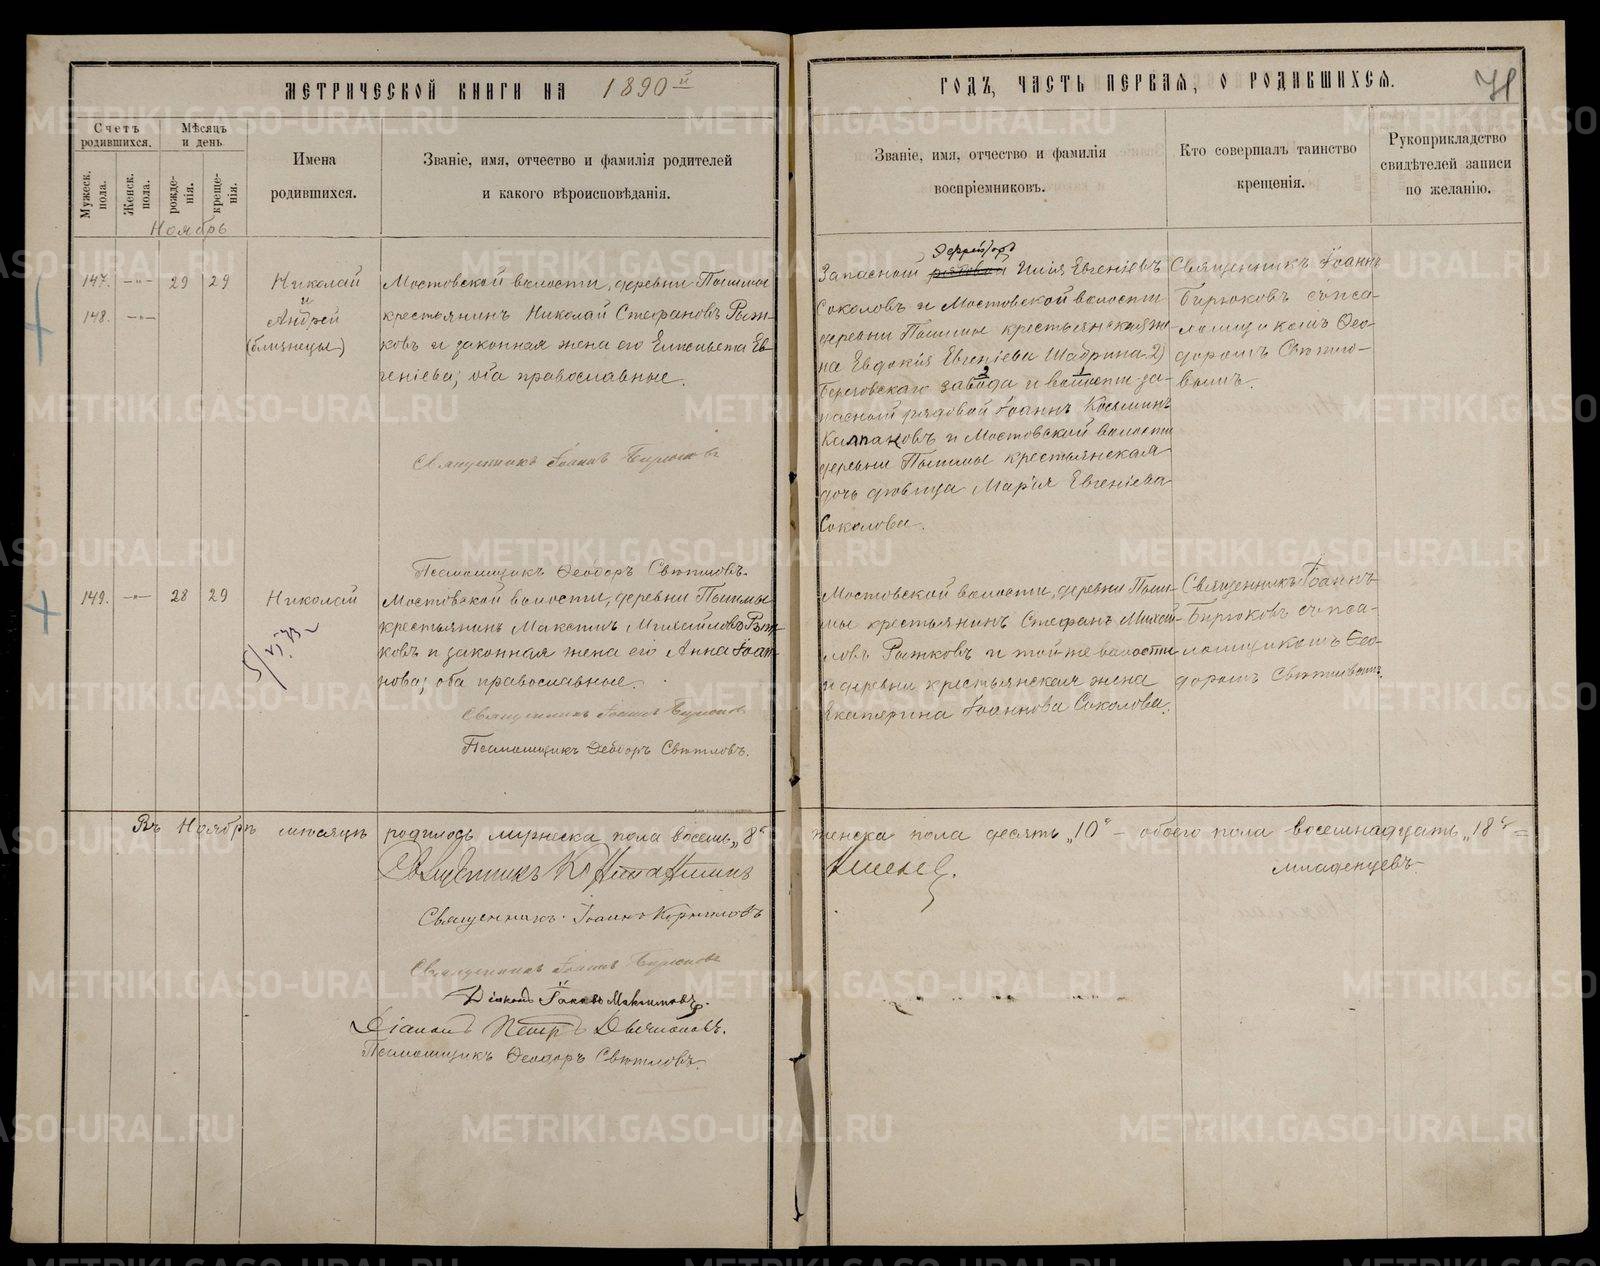 МЕТРИЧЕСКОЙ КНИГИ НА 1890й
ГОДЪ, ЧАСТЬ ПЕРВАЯ, О РОДИВШИХСЯ.
71
Счетъ родившихся.
Мужеск. пола.
Женск. пола.
Мѣсяцъ и день
рожденія.
крещенія.
Имена
родившихся.
Званіе, имя, отчество и фамилія родителей
и какого вѣроисповѣданія.
Званіе, имя, отчество и фамилія
воспріемниковъ.
Кто совершалъ таинство
крещенія.
Рукоприкладство
свидѣтелей записи
по желанію.
Ноябрь
147. -"- 29 29
148. -"-
Николай
и
Андрей
(близнецы)
Мостовской волости, деревни Пышмы
крестьянинъ Николай Стефановъ Рыж-
ковъ и законная жена его Елисавета Ев-
геніева; оба православные.
Священникъ Іоаннъ Бирюковъ
Псаломщикъ Ѳеодоръ Свѣтловъ.
Ефрейторъ
Запасной рядовой Илія Евгеніевъ
Соколовъ и Мостовской волости
деревни Пышмы крестьянская же-
на Евдокія Евгеніева Шабрина 2)
Березовскаго завода 2 и волости 1 за-
пасной рядовой Іоаннъ Косминъ
Калпаковъ и Мостовской волости
деревни Пышмы крестьянская
дочь дѣвица Марія Евгеніева
Соколова.
Священникъ Іоаннъ
Бирюковъ съ пса-
ломщикомъ Ѳео-
доромъ Свѣтло-
вымъ.
149. -"- 28 29
Николай
Мостовской волости, деревни Пышмы
крестьянинъ Максимъ Михайловъ Рыж-
ковъ и законная жена его Анна Іоан-
нова; оба православные.
Священникъ Іоаннъ Бирюковъ
Псаломщикъ Ѳеодоръ Свѣтловъ.
Мостовской волости, деревни Пыш-
мы крестьянинъ Стефанъ Михай-
ловъ Рыжковъ и той же волости
и деревни крестьянская жена
Екатерина Іоаннова Соколова.
Священникъ Іоаннъ
Бирюковъ съ пса-
ломщикомъ Ѳео-
доромъ Свѣтловымъ.
Въ Ноябрѣ мѣсяцѣ родилось мужеска пола восемь „8" женска пола десять „10" – обоего пола восемнадцать „18"
младенцевъ.
Священникъ
Священникъ Іоаннъ Корниловъ
Священникъ Іоаннъ Бирюковъ
Діаконъ Іаковъ
Діаконъ Петръ
Псаломщикъ Ѳеодоръ Свѣтловъ.
METRIKI.GASO-URAL.RU